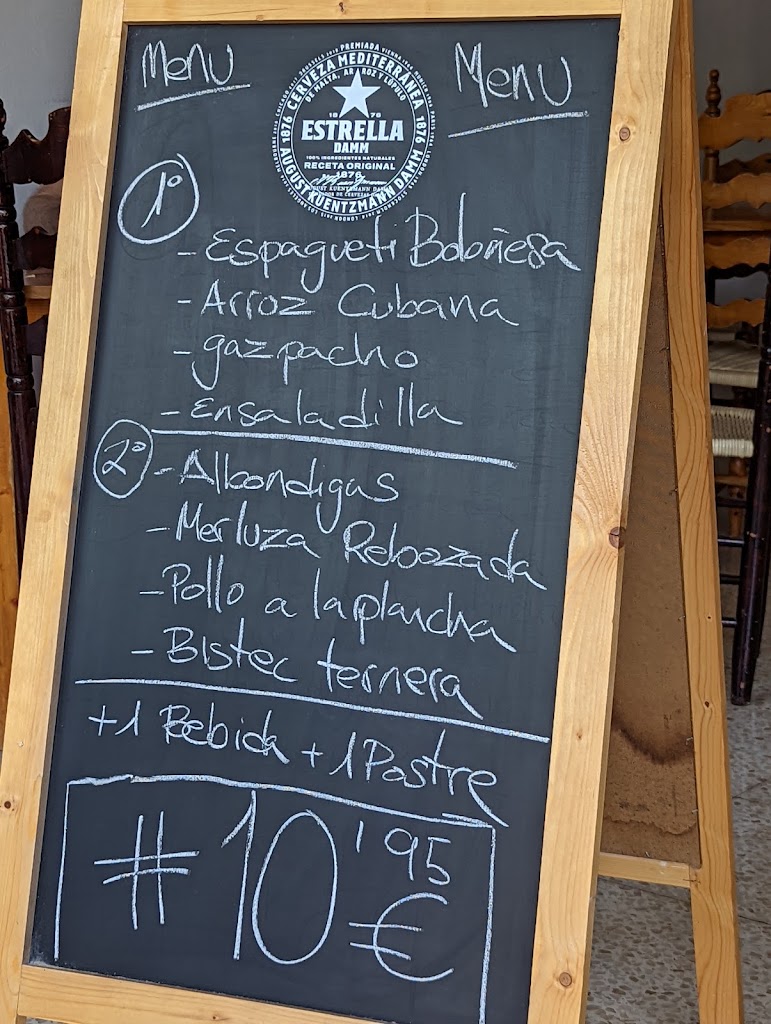 Menu
Menu
PREMIADA
CERVEZA MEDITERRÁNEA
DE MALTA, ARROZ Y LÚPULO
1876
1876
1876
ESTRELLA
DAMM
100% INGREDIENTES NATURALES
RECETA ORIGINAL
1876
AUGUST KUENTZMANN DAMM
AUGUST KUENTZMANN DAMM
1º
- Espagueti Boloñesa
- Arroz Cubana
- gazpacho
- Ensaladilla
2º
- Albondigas
- Merluza Rebozada
- Pollo a la plancha
- Bistec ternera
+1 Bebida +1 Postre
# 10'95 €